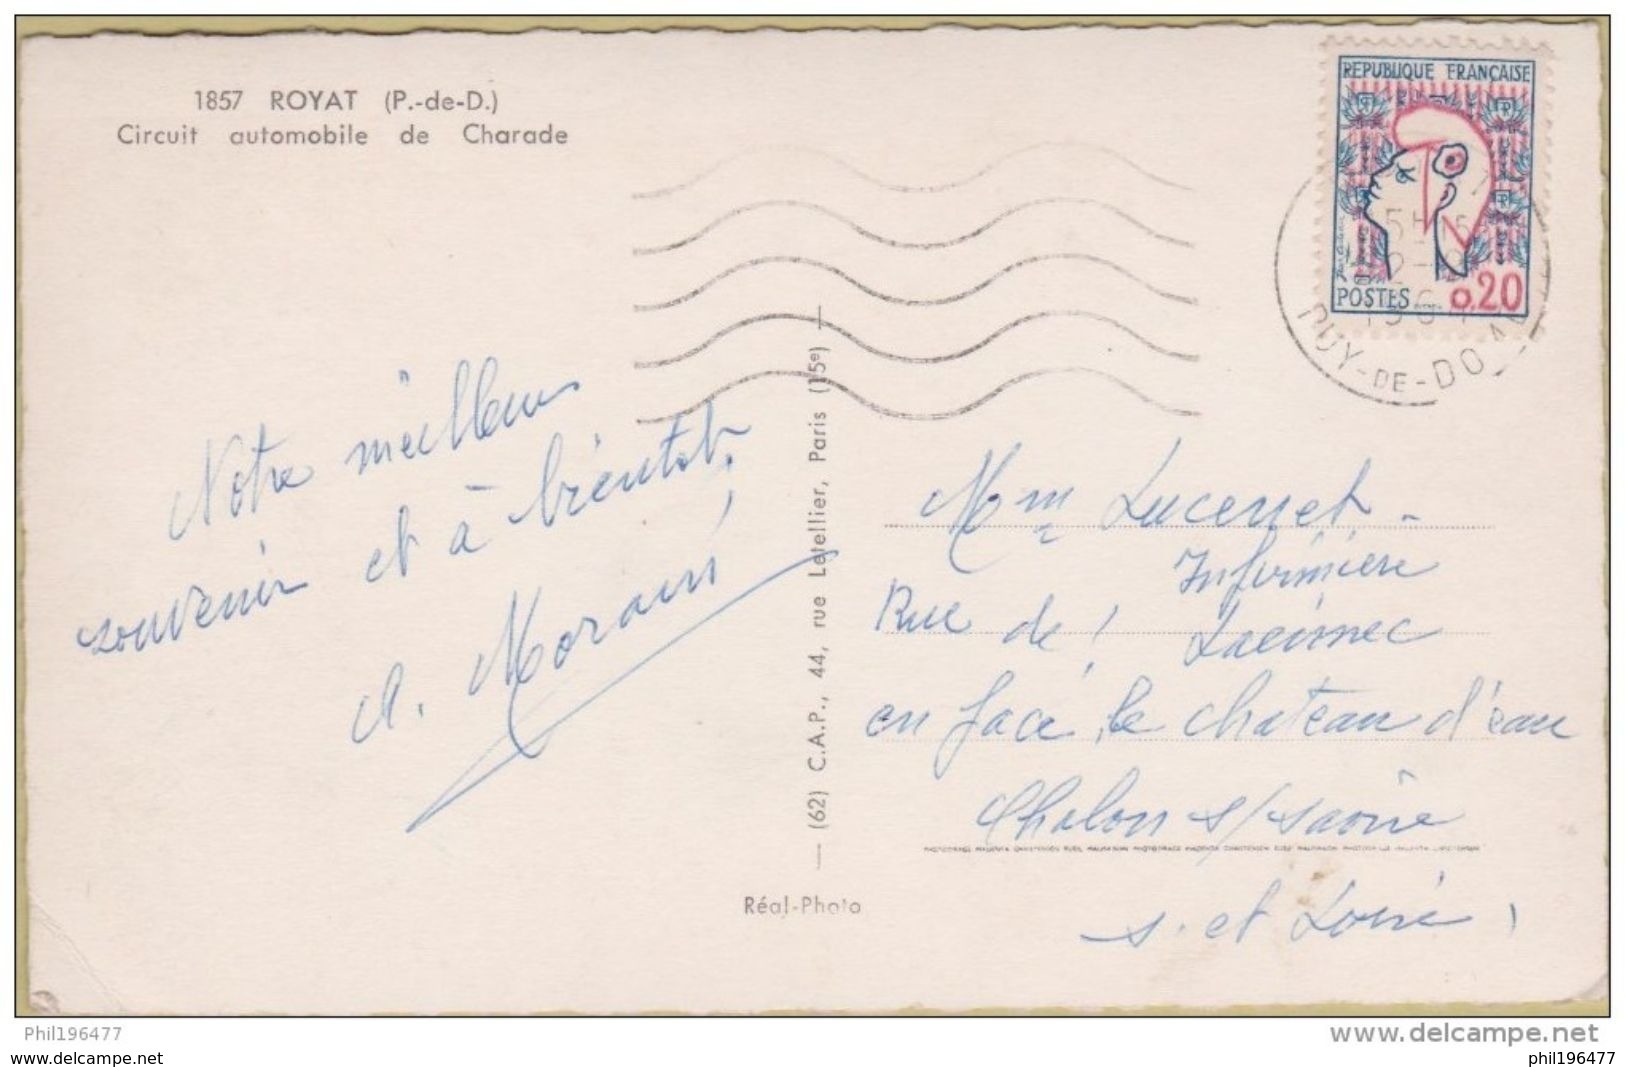 1857 ROYAT (P.-de-D.)
Circuit automobile de Charade
REPUBLIQUE FRANÇAISE
POSTES 0.20
PUY-DE-DOME
Notre meilleur
souvenir et à bientot.
A. Morain
(62) C.A.P., 44, rue Letellier, Paris (15e)
Réal-Photo
Mme Lucenet
Infirmière
Rue de Laennec
en face le chateau d'eau
Chalon s/saône
s. et Loire
Phil196477
www.delcampe.net
delcampe.net
phil196477